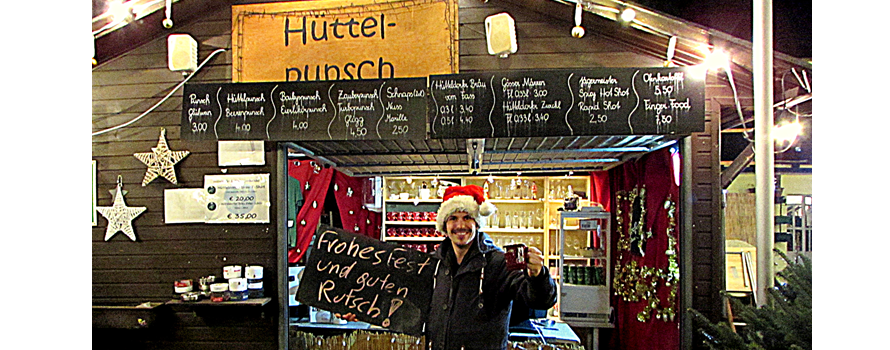 Hüttel-
punsch
Punsch
Glühwein
3,00
Hüttlpunsch
Beerenpunsch
4,00
Bautypunsch
Eierlikörpunsch
4,00
Zauberpunsch
Turbopunsch
Glögg
4,50
Schnaps(erl)
Nuss
Marille
2,50
Hütteldorfer Bräu
vom Fass
0,3l 3,40
0,5l 4,40
Gösser Märzen
Fl 0,33l 3,40
Hütteldorfer Zwickl
Fl 0,33l 3,40
Jägermeister
Spicy Hot Shot
Rapid Shot
2,50
Ofenkartoffel
5,50
Finger Food
7,50
€ 20,00
€ 35,00
Frohes Fest
und guten
Rutsch!